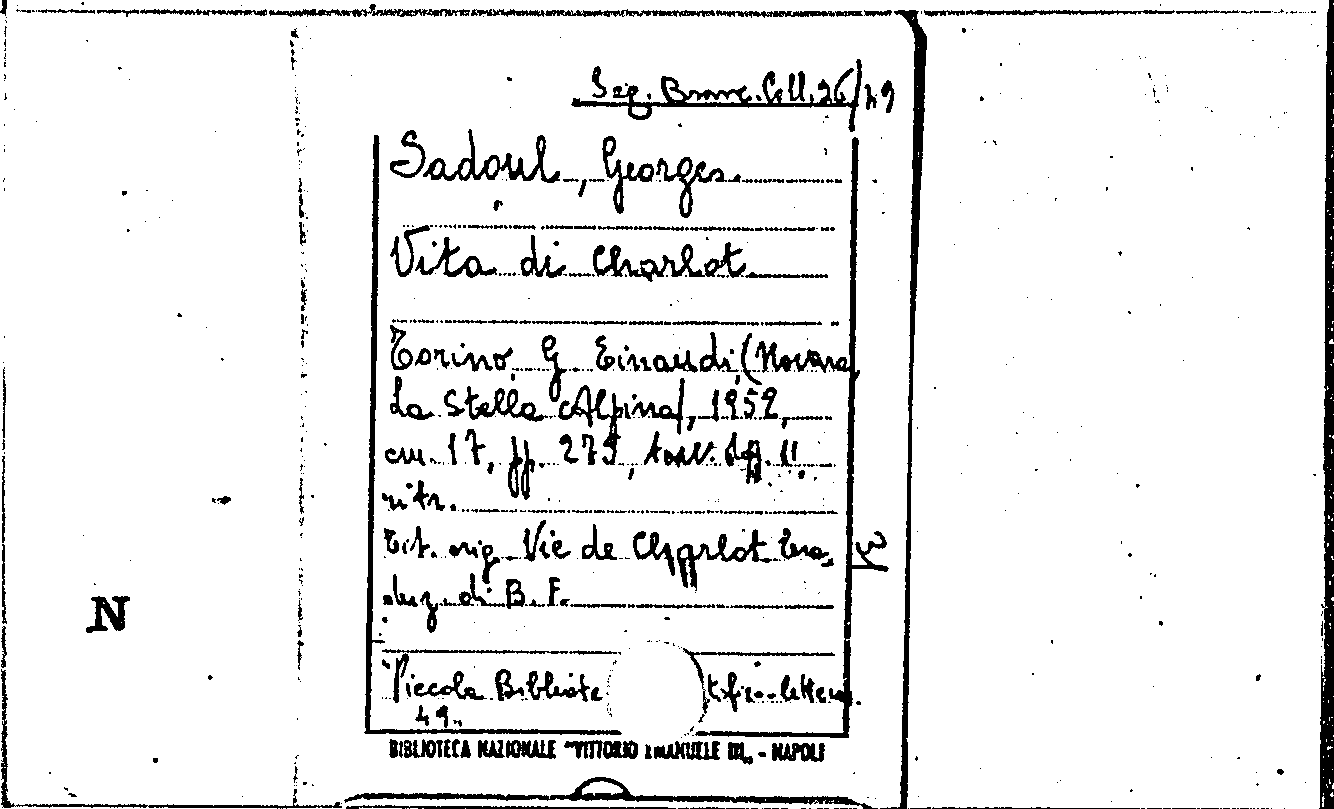 Seg. Branc. Coll. 26/49
Sadoul, Georges.
Vita di Charlot
Torino, G. Einaudi, (Novara,
La Stella Alpina), 1952,
cm. 17, pp. 275, tav.
ritr.
Tit. orig. Vie de Charlot Tra
duz. di B. F.
Piccola Bibliote tifico-letter.
49.
N
BIBLIOTECA NAZIONALE "VITTORIO EMANUELE III„ - NAPOLI